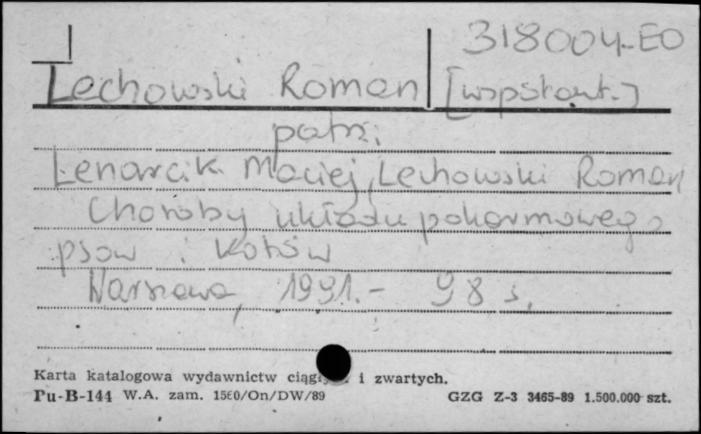 318004-EO
Lechowski Roman [współaut.]
patrz:
Lenarcik Maciej, Lechowski Roman
Choroby układu pokarmowego
psów i kotów
Warszawa, 1991.- 98 s.
Karta katalogowa wydawnictw i zwartych.
Pu-B-144 W.A. zam. 1560/On/DW/89 GZG Z-3 3465-89 1.500.000 szt.